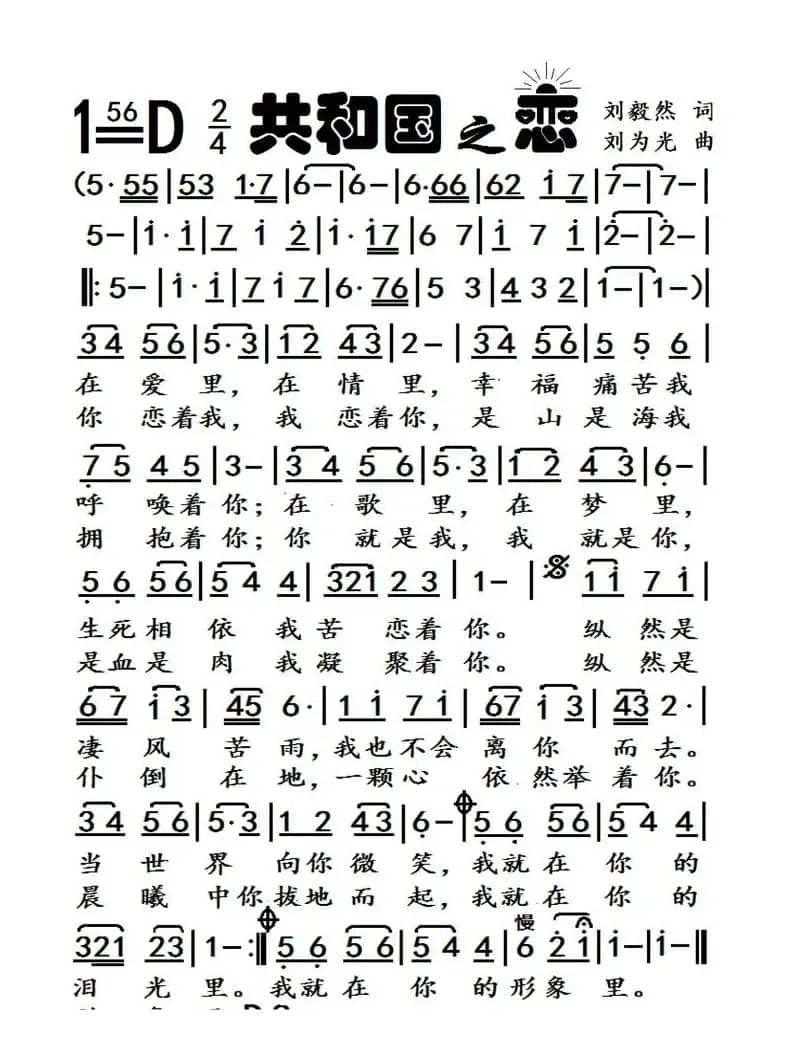 1=D 56 2/4 共和国之恋 刘毅然 词
刘为光 曲
(5·55|53 1·7|6-|6-|6·66|62 i7|7-|7-|
5-|i·i|7 i 2|i·i7|6 7|i 7 i|2-|2-|
‖:5-|i·i|7i7i|6·76|5 3|4 3 2|1-|1-)|
34 56|5·3|12 43|2-|34 56|5 5 6|
在 爱 里，在 情 里，幸 福 痛苦我
你 恋着我，我 恋着你，是 山 是 海我
75 45|3-|34 56|5·3|12 43|6-|
呼 唤着 你；在 歌 里，在 梦 里，
拥 抱着 你；你 就 是我，我 就 是你，
56 56|5 4 4|321 23|1-|ii 7i|
生死相 依 我 苦 恋着 你。 纵 然是
是血是 肉 我 凝 聚着 你。 纵 然是
67 i3|45 6·|1i 7i|67 i3|43 2·|
凄 风 苦 雨，我也不会 离 你 而去。
仆 倒 在 地，一颗心 依 然举 着 你。
34 56|5·3|12 43|6-|56 56|5 4 4|
当 世 界 向你 微 笑，我就 在 你 的
晨 曦 中你 拔地 而 起，我就 在 你 的
慢
321 23|1-:‖5 6 56|5 4 4|6 2i|i-|i-‖
泪 光 里。我就 在 你 的形 象 里。